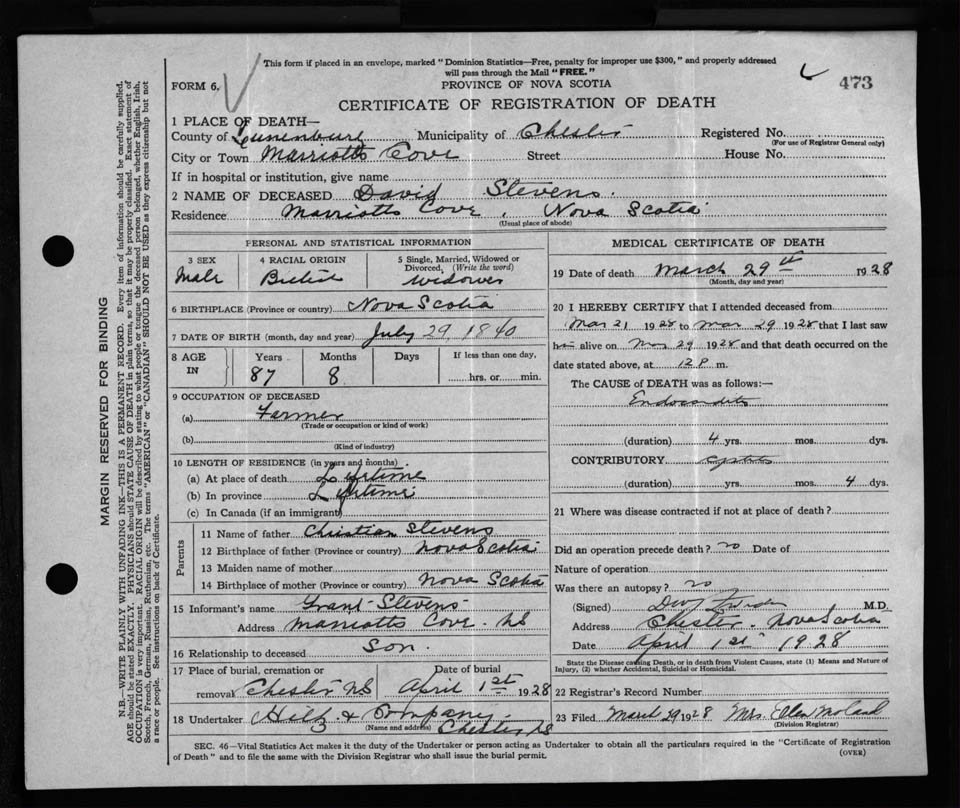 This form if placed in an envelope, marked "Dominion Statistics—Free, penalty for improper use $300," and properly addressed
will pass through the Mail "FREE."
FORM 6.
PROVINCE OF NOVA SCOTIA
473
CERTIFICATE OF REGISTRATION OF DEATH
1 PLACE OF DEATH—
County of Lunenburg Municipality of Chester Registered No.
(For use of Registrar General only)
City or Town Marriotts Cove Street House No.
If in hospital or institution, give name
2 NAME OF DECEASED David Stevens.
Residence Marriotts Cove, Nova Scotia
(Usual place of abode)
PERSONAL AND STATISTICAL INFORMATION
3 SEX 4 RACIAL ORIGIN 5 Single, Married, Widowed or Divorced, (Write the word)
Male British Widower
6 BIRTHPLACE (Province or country) Nova Scotia
7 DATE OF BIRTH (month, day and year) July 29, 1840
8 AGE IN Years Months Days If less than one day,
87 8 hrs. or min.
9 OCCUPATION OF DECEASED
(a) Farmer
(Trade or occupation or kind of work)
(b)
(Kind of industry)
10 LENGTH OF RESIDENCE (in years and months)
(a) At place of death Lifetime
(b) In province Lifetime
(c) In Canada (if an immigrant)
Parents
11 Name of father Christian Stevens
12 Birthplace of father (Province or country) Nova Scotia
13 Maiden name of mother
14 Birthplace of mother (Province or country) Nova Scotia
15 Informant's name Grant Stevens
Address Marriotts Cove. NS
16 Relationship to deceased Son.
17 Place of burial, cremation or Date of burial
removal Chester NS April 1st 1928
18 Undertaker Hiltz & Company
(Name and address) Chester NS
MEDICAL CERTIFICATE OF DEATH
19 Date of death March 29th 1928
(Month, day and year)
20 I HEREBY CERTIFY that I attended deceased from
Mar 21 1928 to Mar 29 1928 that I last saw
him alive on Mar 29 1928 and that death occurred on the
date stated above, at 12 P m.
The CAUSE of DEATH was as follows:—
Endocarditis
(duration) 4 yrs. mos. dys.
CONTRIBUTORY Cystitis
(duration) yrs. mos. 4 dys.
21 Where was disease contracted if not at place of death?
Did an operation precede death? no Date of
Nature of operation
Was there an autopsy? no
(Signed) M.D.
Address Chester. Nova Scotia
Date April 1st 1928
State the Disease causing Death, or in death from Violent Causes, state (1) Means and Nature of
Injury, (2) whether Accidental, Suicidal or Homicidal.
22 Registrar's Record Number
23 Filed March 29 1928 Mrs. Ellen
(Division Registrar)
SEC. 46—Vital Statistics Act makes it the duty of the Undertaker or person acting as Undertaker to obtain all the particulars required in the "Certificate of Registration
of Death" and to file the same with the Division Registrar who shall issue the burial permit.
(OVER)
MARGIN RESERVED FOR BINDING
N.B.—WRITE PLAINLY WITH UNFADING INK—THIS IS A PERMANENT RECORD. Every item of information should be carefully supplied.
AGE should be stated EXACTLY. PHYSICIANS should STATE CAUSE OF DEATH in plain terms, so that it may be properly classified. Exact statement of
OCCUPATION is very important. RACIAL ORIGIN will be described by stating to what people or tongue the deceased person belonged, whether English, Irish,
Scotch, French, German, Russian, Ruthenian, etc. The terms "AMERICAN" or "CANADIAN" SHOULD NOT BE USED as they express citizenship but not
a race or people. See instructions on back of Certificate.